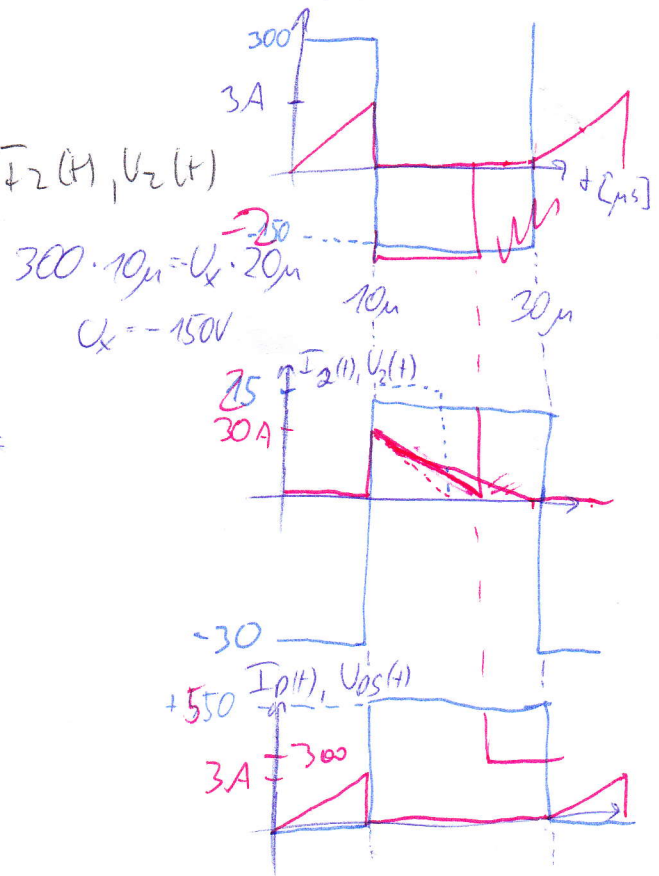 300
3A
I₂(t), U₂(t)
t [μs]
-250
300 · 10μ = -Uₓ · 20μ
10μ
30μ
Uₓ = -150V
I₂(t), U₂(t)
25
30A
-30
I_D(t), U_DS(t)
+550
300
3A